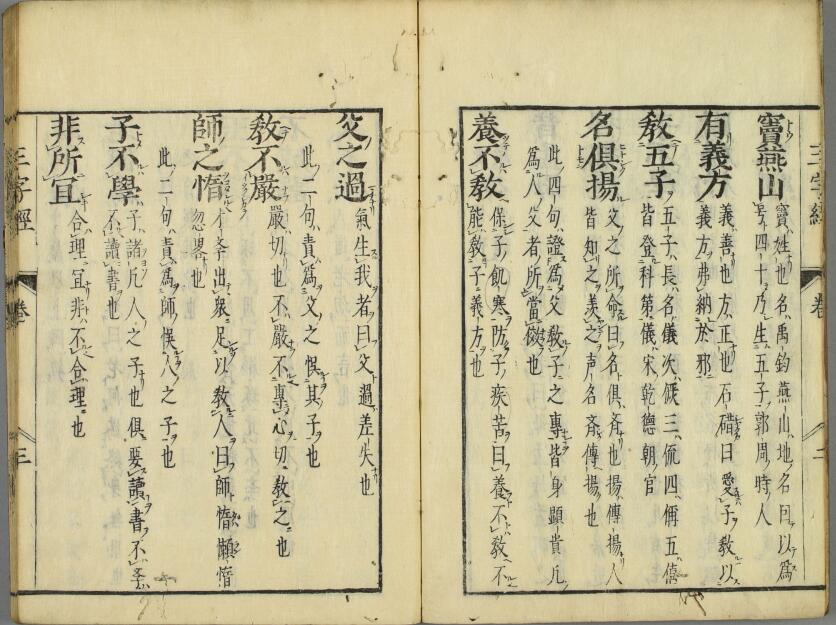 三字經 卷 二
竇燕山 竇姓也名禹鈞燕山地名因以爲
号四十乃生五子郭周時人
有義方 義善也方正也石碏曰愛子教以
義方弗納於邪
教五子 五子長名儀次儼三侃四偁五僖
皆登科第儀宋乾德朝官
名俱揚 父之所命曰名俱斉也揚傳揚人
皆知之羨之声名斉傳揚也
此四句證爲父教子之專皆身顕貴凡
爲人父者所當傚也
養不教 保子飢寒防子疾苦曰養不教不
能教子義方也
父之過 氣生我者曰父過差失也
此二句責爲父之悞其子也
教不嚴 嚴切也不嚴不專心切教之也
師之惰 才斈出衆足以教人曰師惰懶惰
忽畧也
此二句責爲師悞人之子也
子不學 子諸凡人之子也俱要讀書不斈
不讀書也
非所宜 合理宜非不合理也
三字經 卷 三